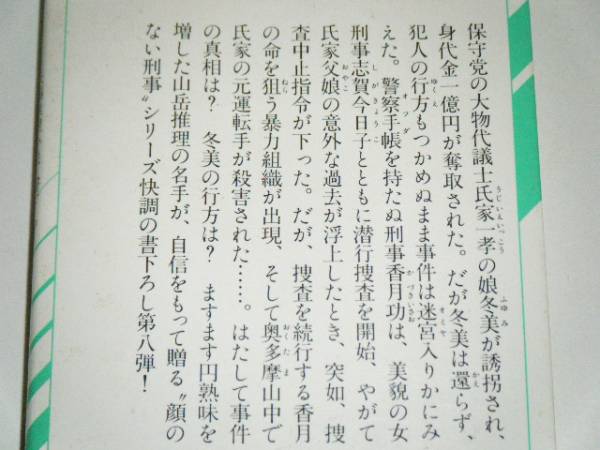 保守党の大物代議士氏家一孝の娘冬美が誘拐され、
身代金一億円が奪取された。だが冬美は還らず、
犯人の行方もつかめぬまま事件は迷宮入りかにみ
えた。警察手帳を持たぬ刑事香月功は、美貌の女
刑事志賀今日子とともに潜行捜査を開始、やがて
氏家父娘の意外な過去が浮上したとき、突如、捜
査中止指令が下った。だが、捜査を続行する香月
の命を狙う暴力組織が出現、そして奥多摩山中で
氏家の元運転手が殺害された……。はたして事件
の真相は？ 冬美の行方は？ ますます円熟味を
増した山岳推理の名手が、自信をもって贈る〝顔の
ない刑事〟シリーズ快調の書下ろし第八弾！